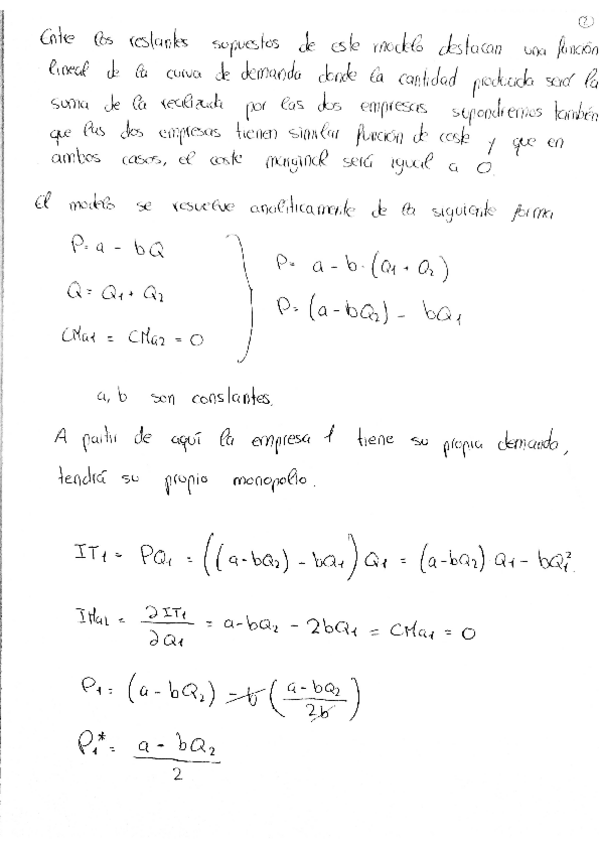 ②
Entre los restantes supuestos de este modelo destacan una función
lineal de la curva de demanda donde la cantidad producida será la
suma de la realizada por las dos empresas supondremos también
que las dos empresas tienen similar función de coste y que en
ambos casos, el coste marginal será igual a 0.
El modelo se resuelve analíticamente de la siguiente forma
P = a - bQ
Q = Q₁ + Q₂
CMa₁ = CMa₂ = 0
P = a - b · (Q₁ + Q₂)
P = (a - bQ₂) - bQ₁
a, b son constantes.
A partir de aquí la empresa 1 tiene su propia demanda,
tendrá su propio monopolio.
IT₁ = PQ₁ = ((a - bQ₂) - bQ₁) Q₁ = (a - bQ₂) Q₁ - bQ₁².
IMa₁ = ∂IT₁/∂Q₁ = a - bQ₂ - 2bQ₁ = CMa₁ = 0
P₁ = (a - bQ₂) - b ((a - bQ₂)/2b)
P₁* = (a - bQ₂)/2